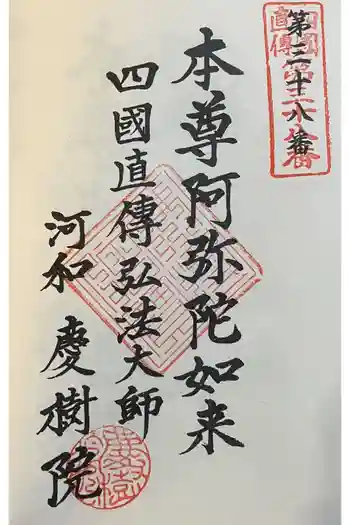 四國直傳
第三十八番
本尊阿弥陀如来
四國直傳弘法大師
河和 慶樹院